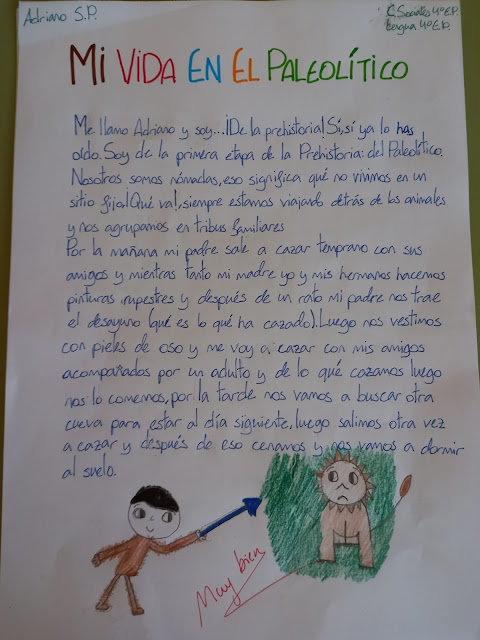 Adriano S.P.
C. Sociales 4ºE.P.
Lengua 4ºE.P.
MI VIDA EN EL PALEOLÍTICO
Me llamo Adriano y soy...¡De la prehistoria! Sí, sí ya lo has
oído. Soy de la primera etapa de la Prehistoria: del Paleolítico.
Nosotros somos nómadas, eso significa qué no vivimos en un
sitio fijo ¡Qué va!, siempre estamos viajando detrás de los animales
y nos agrupamos en tribus familiares
Por la mañana mi padre sale a cazar temprano con sus
amigos y mientras tanto mi madre yo y mis hermanos hacemos
pinturas rupestres y después de un rato mi padre nos trae
el desayuno (qué es lo qué ha cazado). Luego nos vestimos
con pieles de oso y me voy a cazar con mis amigos
acompañados por un adulto y de lo qué cazamos luego
nos lo comemos, por la tarde nos vamos a buscar otra
cueva para estar al día siguiente, luego salimos otra vez
a cazar y después de eso cenamos y nos vamos a dormir
al suelo.
Muy bien